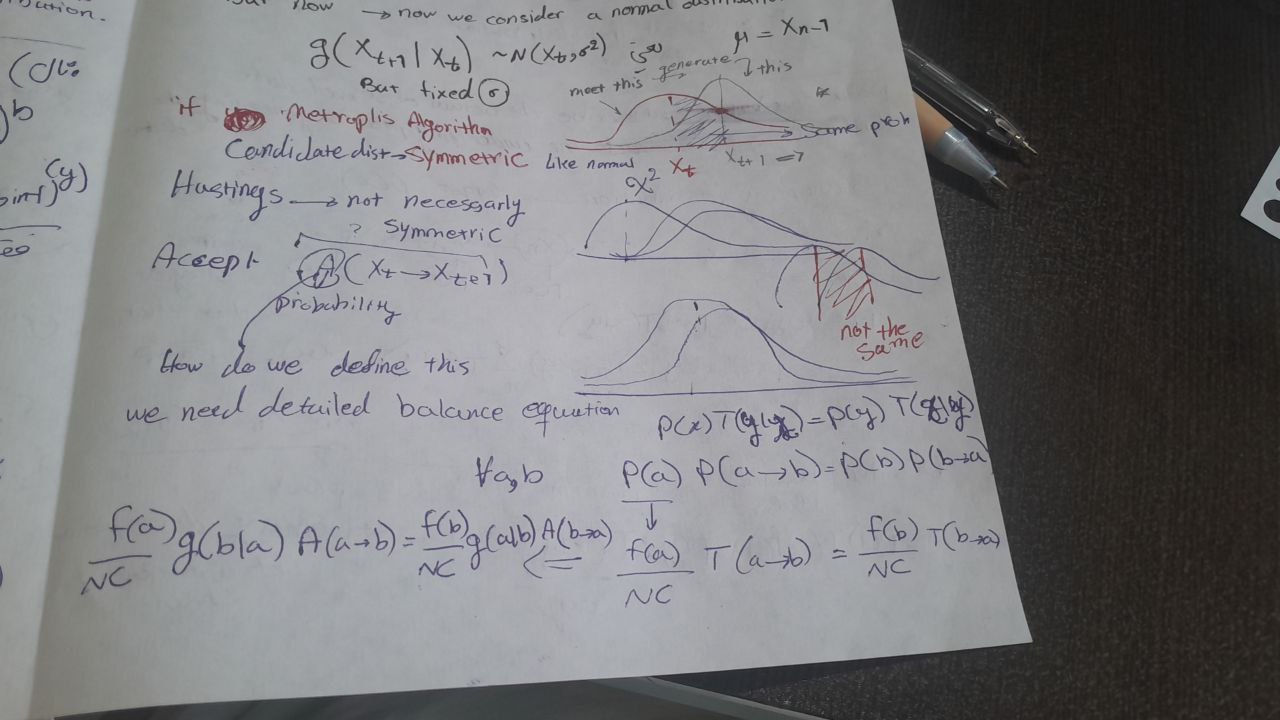 bution.
now → now we consider a normal
g(X_{t+1} | X_t) ~ N(X_t, σ²) μ = X_{n-1}
But fixed σ
meet this generate this
if Metroplis Algorithm
Candidate dist → Symmetric Like normal
Same prob
X_t X_{t+1} = ?
Hustings → not necessarly
? Symmetric
X²
Accept A(X_t → X_{t+1})
probability
not the
same
How do we define this
we need detailed balance equation
P(x) T(y|x) = P(y) T(x|y)
∀a,b P(a) P(a→b) = P(b) P(b→a)
f(a)/NC g(b|a) A(a→b) = f(b)/NC g(a|b) A(b→a) ⇐ f(a)/NC T(a→b) = f(b)/NC T(b→a)